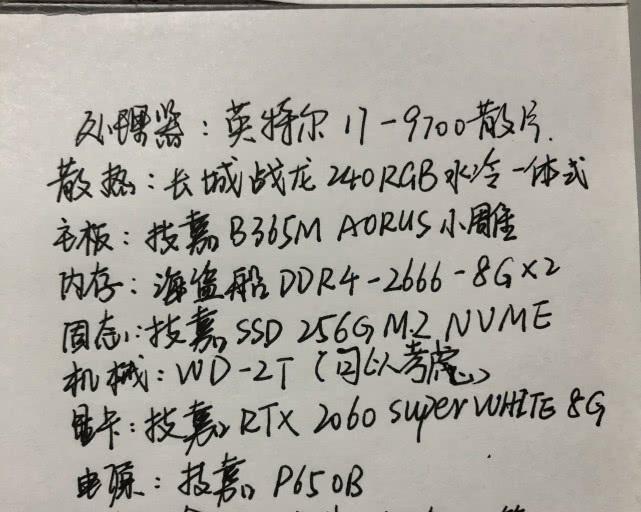 处理器：英特尔 i7-9700散片.
散热：长城战龙240RGB水冷一体式
主板：技嘉B365M AORUS小雕
内存：海盗船DDR4-2666-8G×2
固态：技嘉SSD 256G M.2 NVME
机械：WD-2T（可以考虑）
显卡：技嘉RTX 2060 super WHITE 8G
电源：技嘉P650B